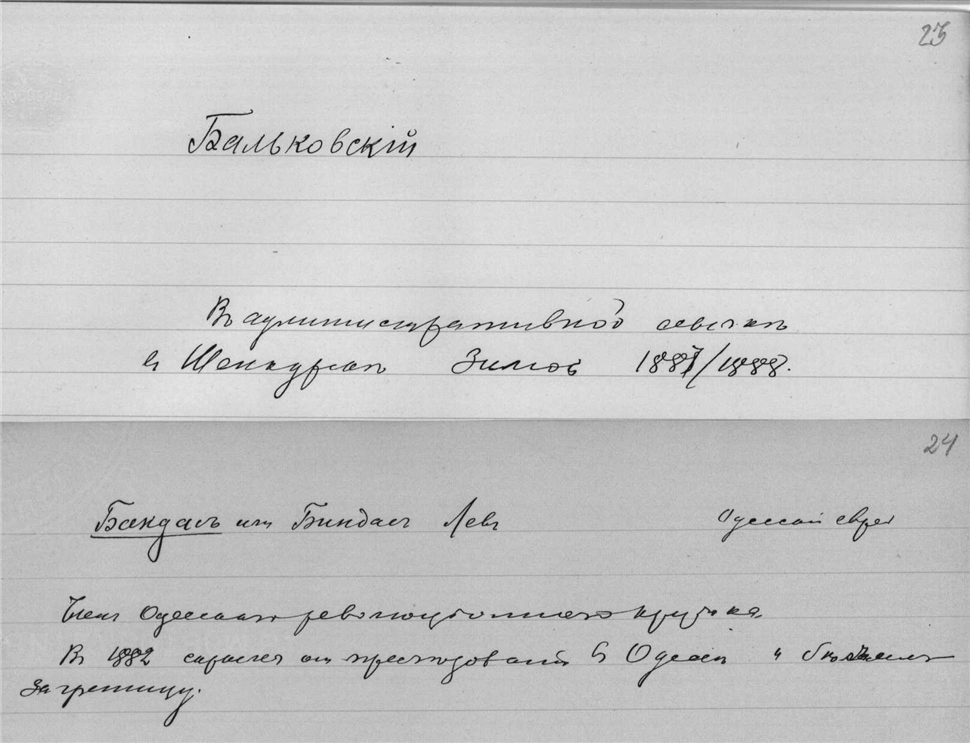 23
Бальковскій
Въ административной ссылкѣ
въ Шенкурскѣ Зимой 1887/1888.
24
Бандасъ или Биндасъ Левъ Одесский еврей
Членъ Одесскаго революціоннаго кружка
Въ 1882 скрылся отъ преслѣдований въ Одессѣ и бѣжалъ
заграницу.